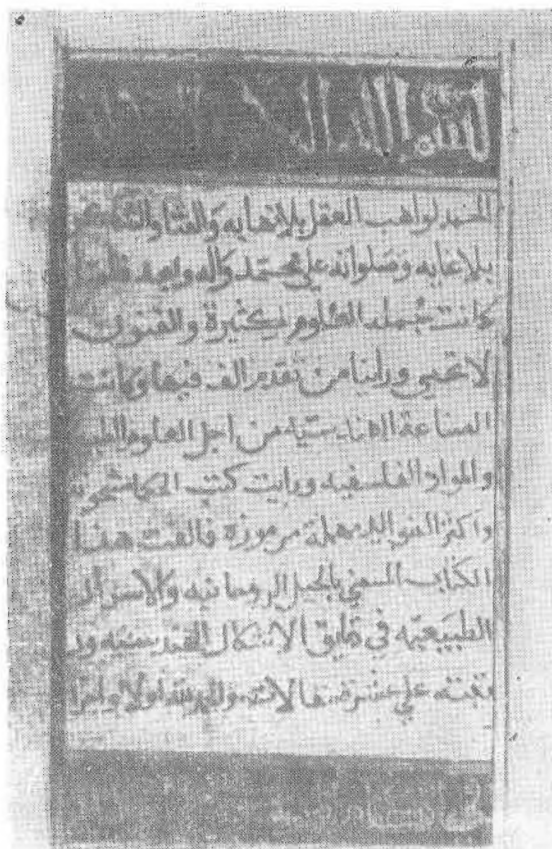 بسم الله الر
الحمد لواهب العقل بلا نهايه والثنا والشكر
بلا غايه وصلواته على محمد واله وبعد فلما
كانت جمله العلوم كثيرة والفنون
لا تحصى وراينا من تقدم الف فيها وكانت
الصناعة الهندسيه من اجل العلوم الطبيعـ
والمواد الفلسفيه ورايت كتب الحكما مشحونه
واكثر الفوايد مهملة مرموزة فالفت هذا
الكتاب المسمى بالحيل الروحانيه والاسرار
الطبيعيه في دقايق الاشكال الهندسيه ور
تبته على عشرة مقالات والله اولا واخرا